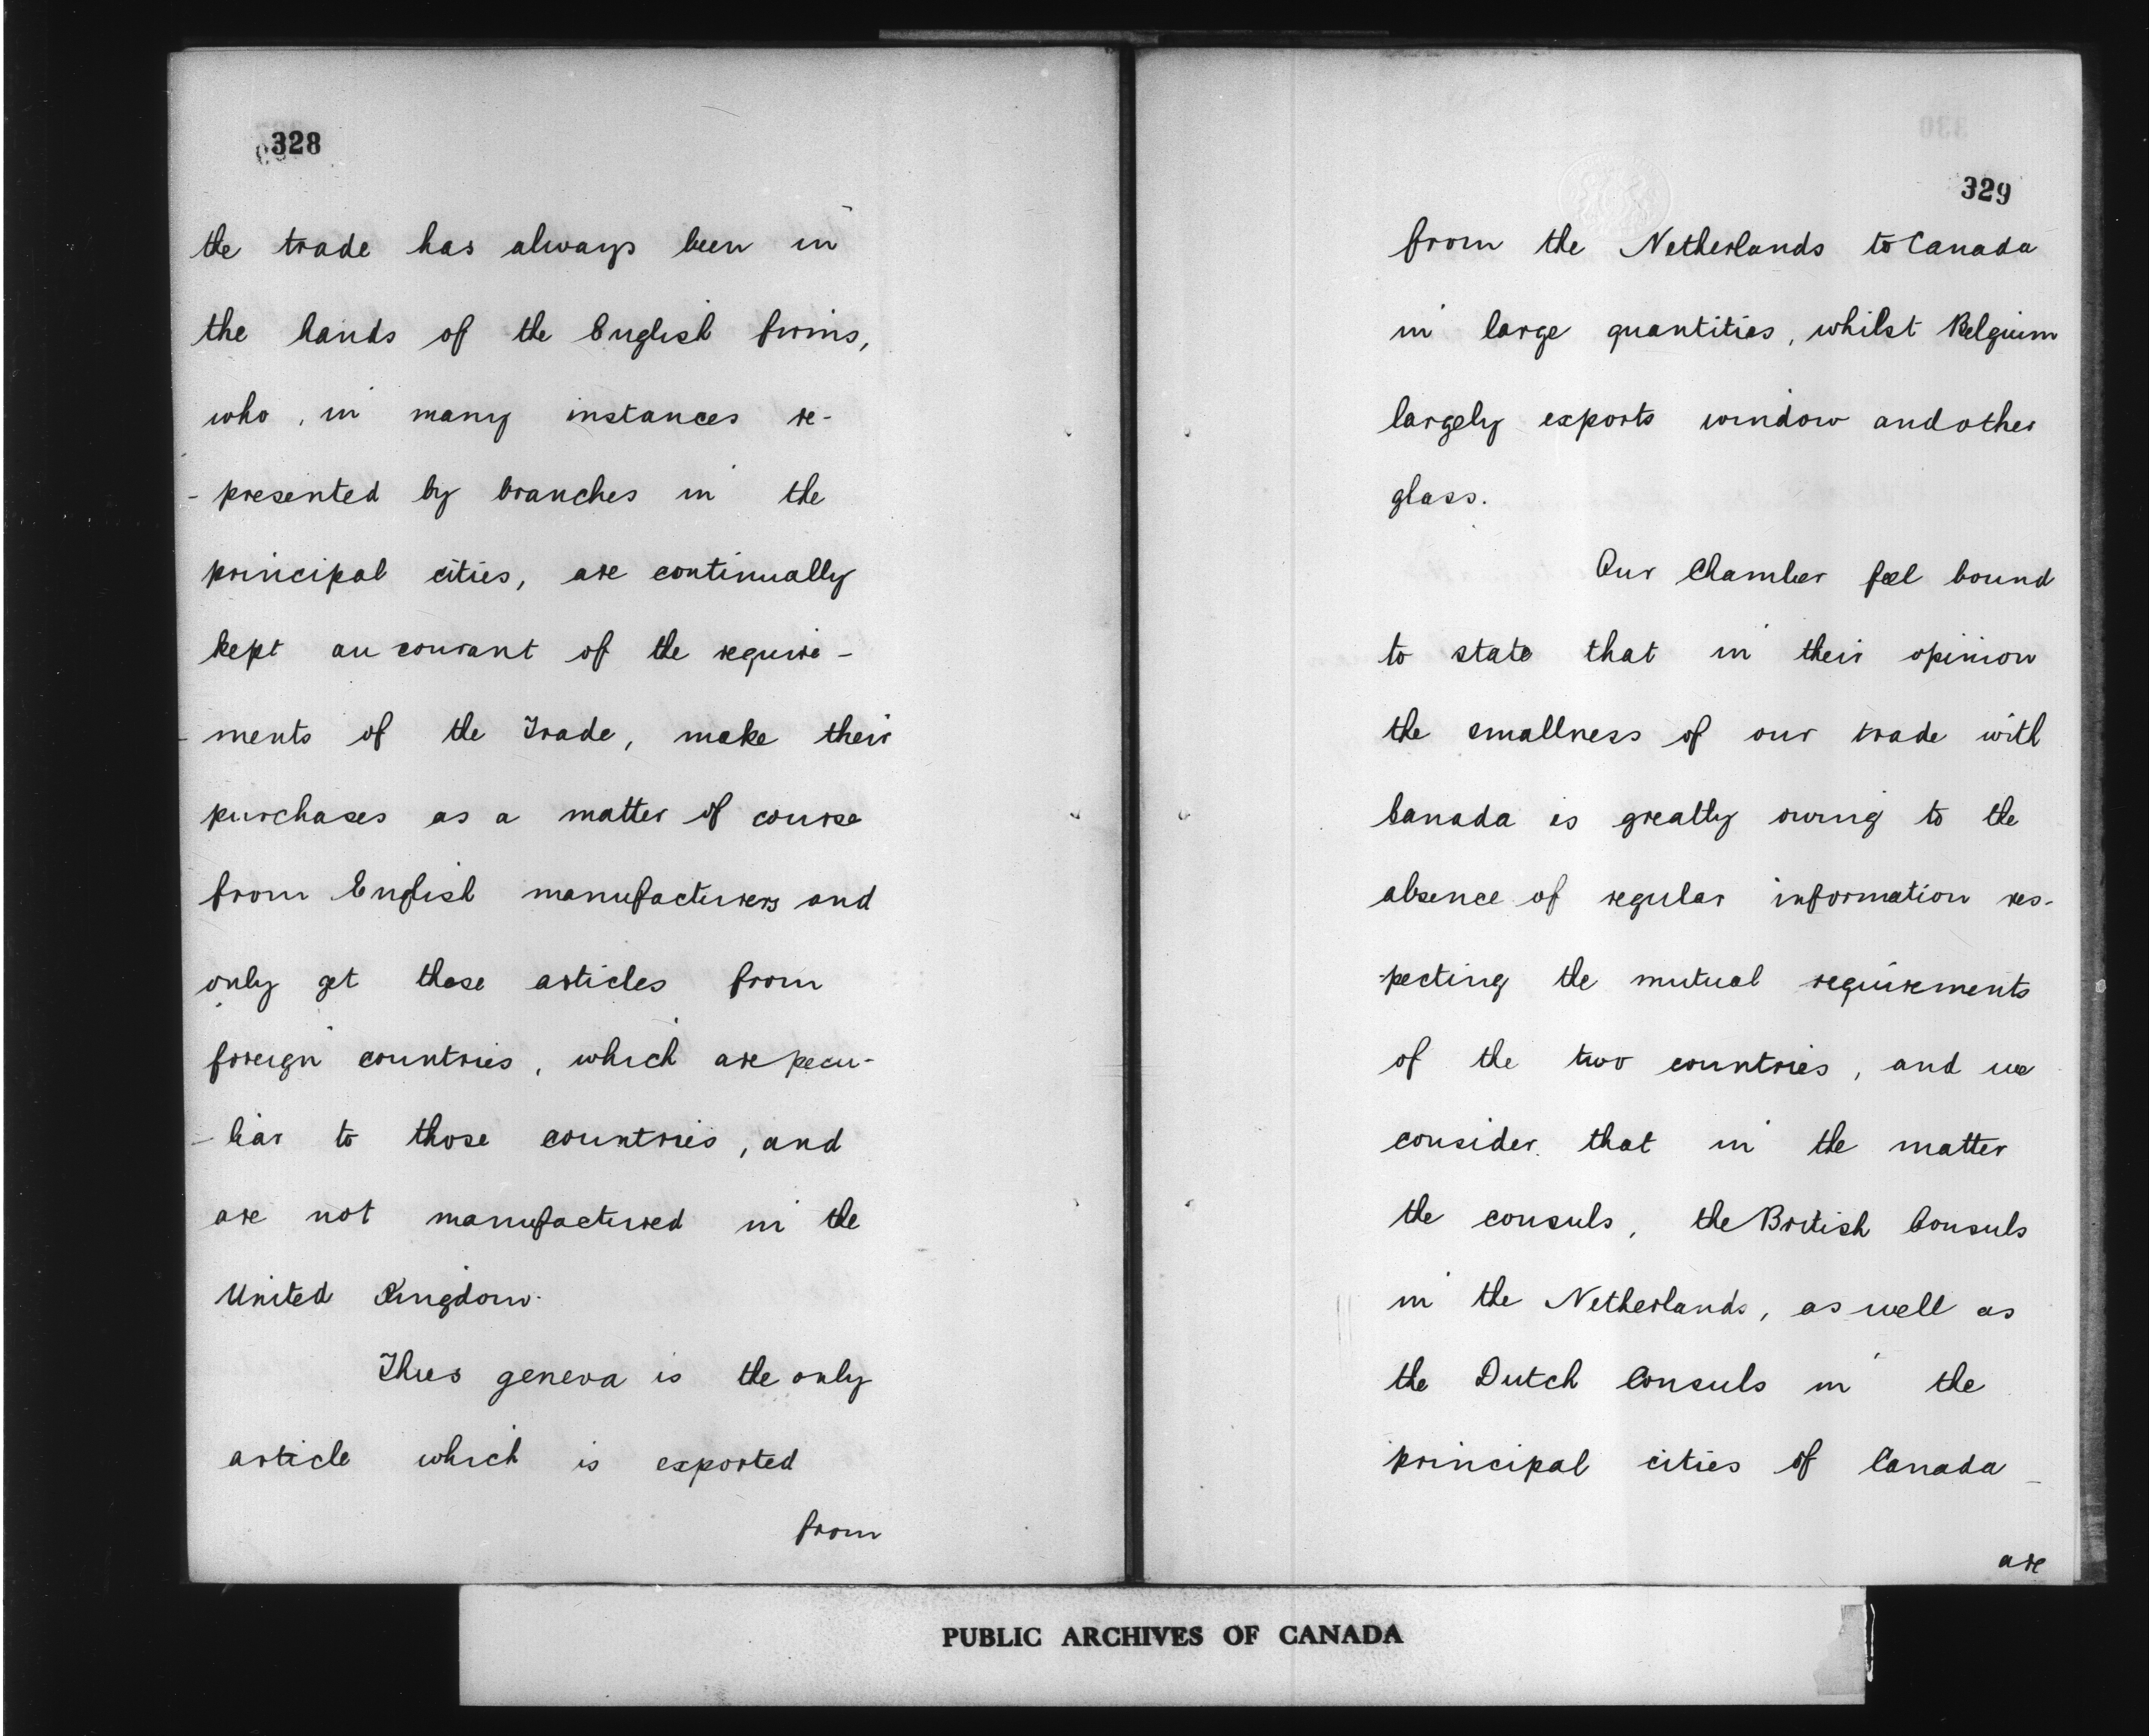 328
the trade has always been in
the hands of the English firms,
who, in many instances re-
- presented by branches in the
principal cities, are continually
kept au courant of the require -
- ments of the Trade, make their
purchases as a matter of course
from English manufacturers and
only get those articles from
foreign countries, which are pecu-
- liar to those countries, and
are not manufactured in the
United Kingdom.
Thus geneva is the only
article which is exported
from
329
from the Netherlands to Canada
in large quantities, whilst Belgium
largely exports window and other
glass.
Our Chamber feel bound
to state that in their opinion
the smallness of our trade with
Canada is greatly owing to the
absence of regular information res-
-pecting the mutual requirements
of the two countries, and we
consider that in the matter
the consuls, the British Consuls
in the Netherlands, as well as
the Dutch Consuls in the
principal cities of Canada
are
PUBLIC ARCHIVES OF CANADA